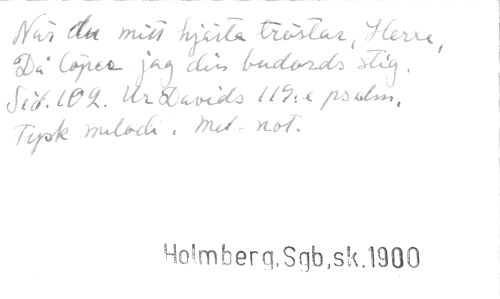 När du mitt hjärta tröstar, Herre,
Då löper jag din budords stig.
Sid. 102. Ur Davids 119:e psalm.
Tysk melodi. Mel-not.
Holmberg,Sgb,sk.1900